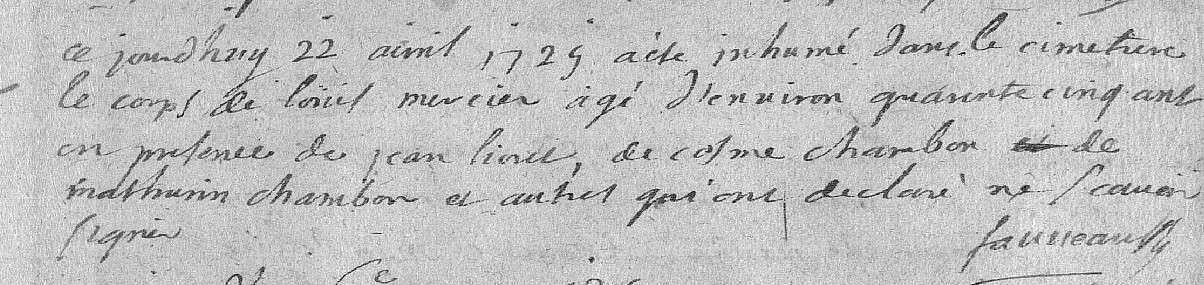 ce jourdhuy 22 avril 1725 a été inhumé dans le cimetiere
le corps de loüis mercier agé d'environ quarente cinq ans
en presence de jean lionet, de cosme chambon et de
mathurin chambon et autres qui ont declaré ne scavoir
signer